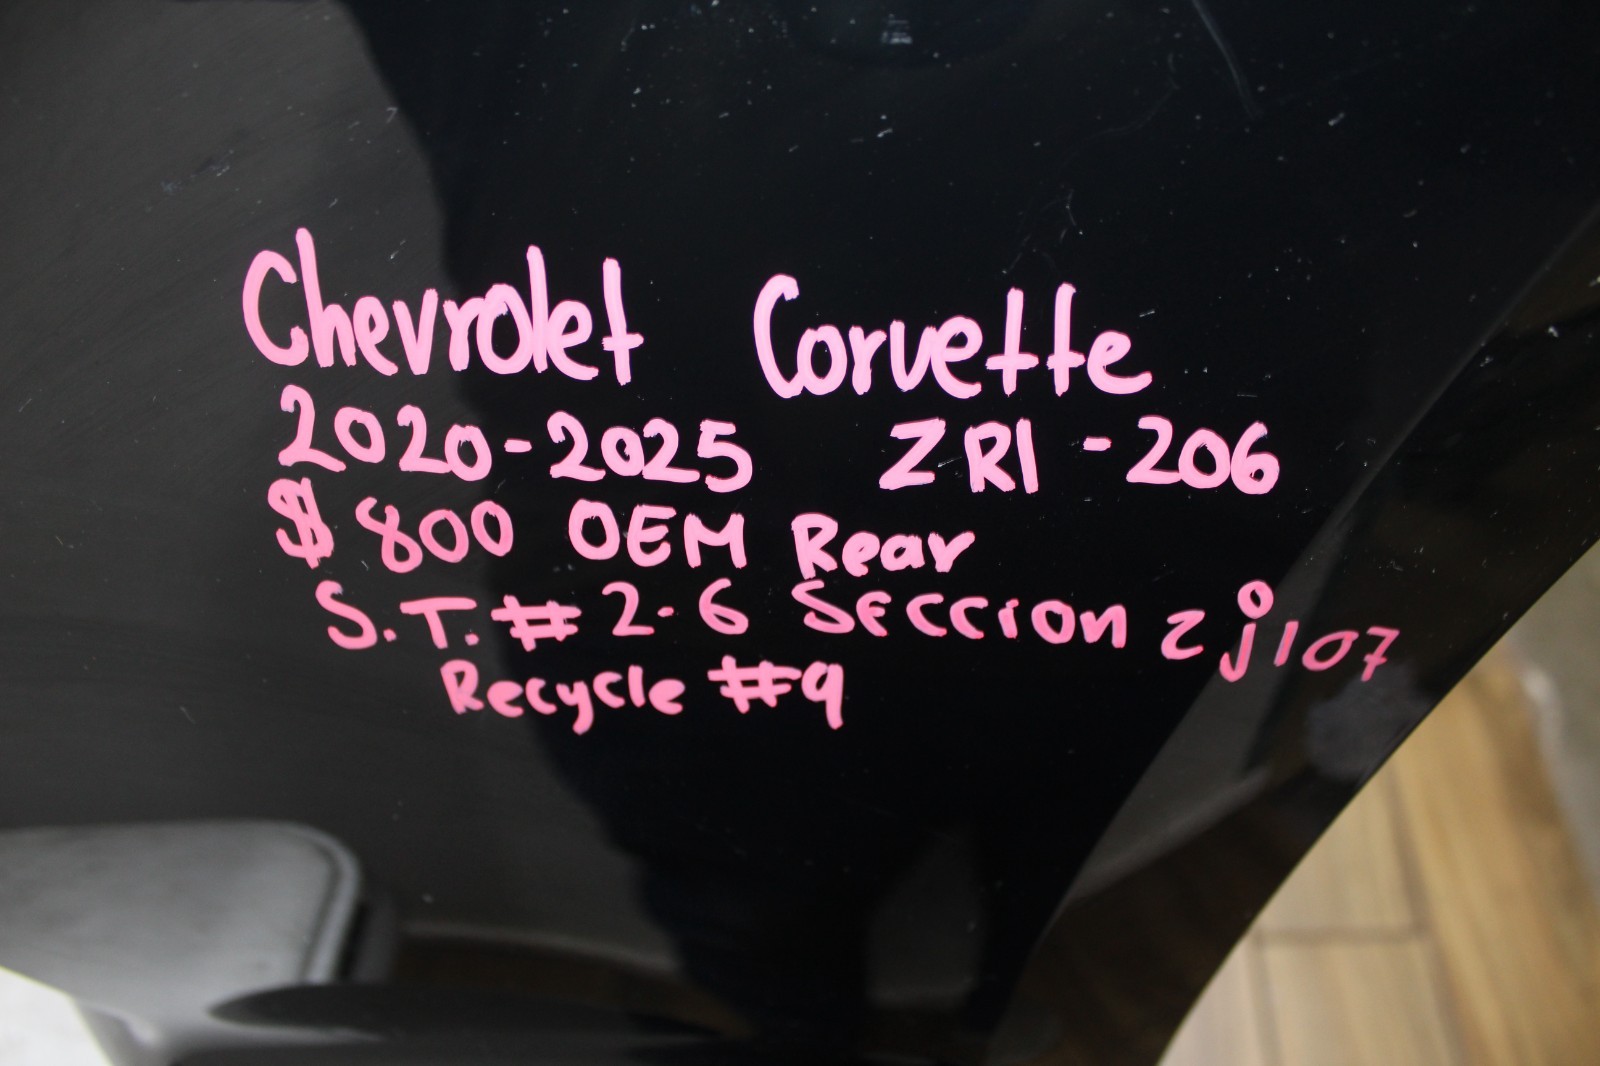 Chevrolet Corvette
2020-2025 ZR1-206
$800 OEM Rear
S.T.#2-6 Seccion 2j107
Recycle #9